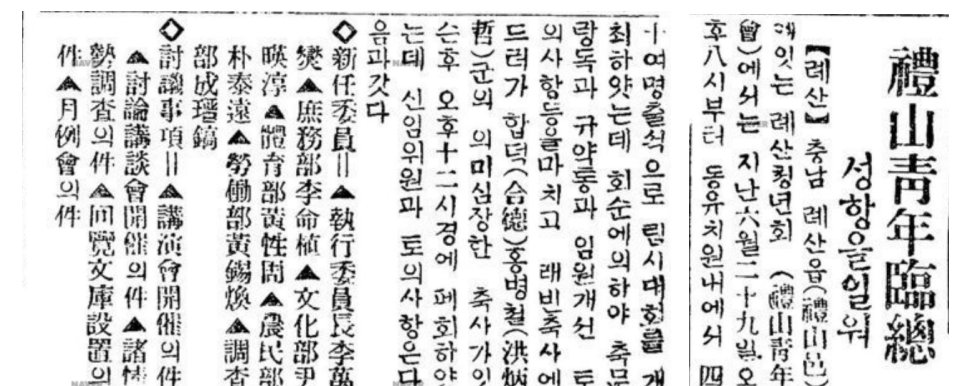 禮山靑年臨總
성항을일워
【례산】 충남 례산읍(禮山邑)
에잇는 례산청년회 (禮山靑年
會)에서는 지난六월二十九일오
후八시부터 동유치원내에서 四
十여명출석으로 림시대회를 개
최하얏는데 회순에의하야 축문
랑독과 규약통과 임원개선 토
의사항등을마치고 래빈축사에
드러가 합덕(合德)홍병철(洪炳
哲)군의 의미심장한 축사가잇
슨후 오후十二시경에 폐회하얏
는데 신임위원과 토의사항은다
음과갓다
◇新任委員＝▲執行委員長李萬
爕▲庶務部李命植▲文化部尹
暎淳▲體育部黃性周▲農民部
朴泰遠▲勞働部黃錫煥▲調査
部成瑨鎬
◇討議事項＝▲講演會開催의件
▲討論講談會開催의件▲諸情
勢調査의件▲回覽文庫設置의
件▲月例會의件